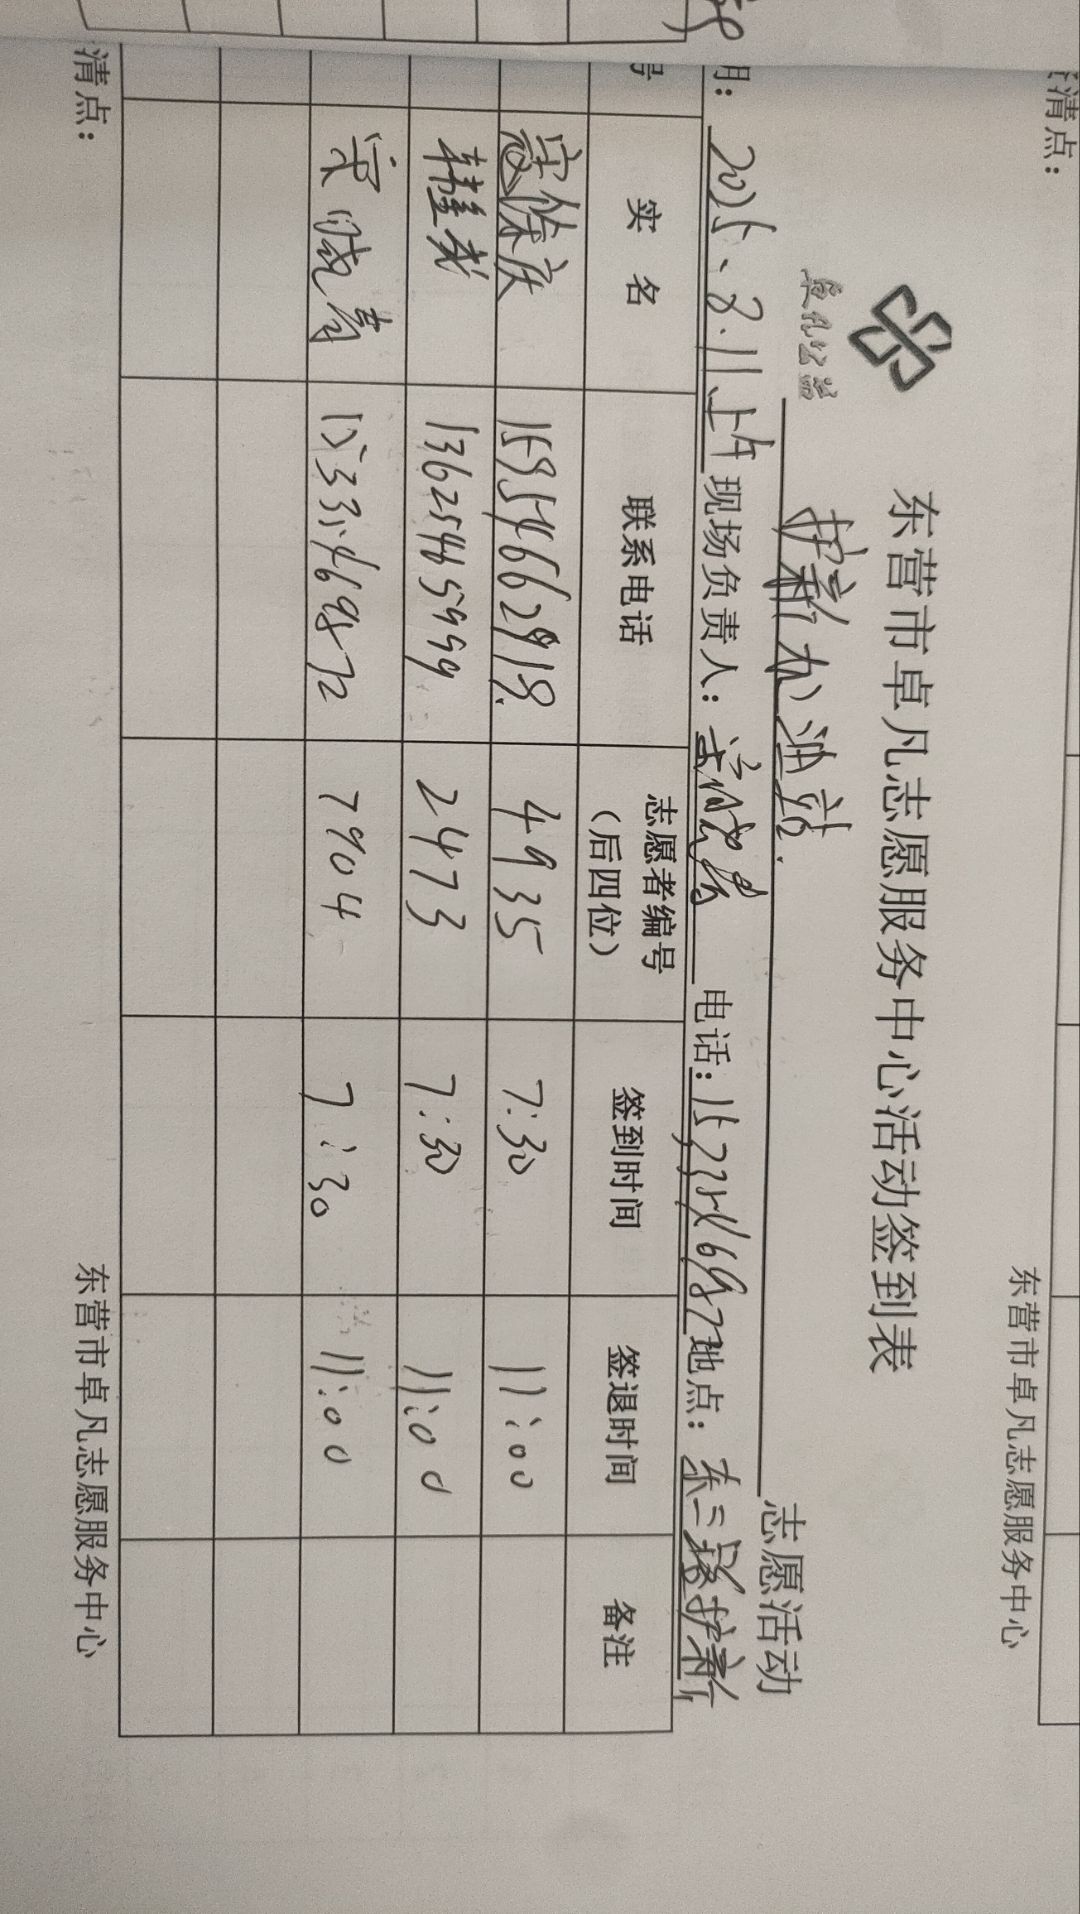 东营市卓凡志愿服务中心活动签到表
卓凡公益
护新加油站 志愿活动
期：2025、8.11上午 现场负责人： 电话：15233546987 地点：东二路护新
号 实名 联系电话 志愿者编号（后四位） 签到时间 签退时间 备注
15954662918 4935 7:30 11:00
13625465999 2473 7:30 11:00
15333469872 7904 7:30 11:00
清点： 东营市卓凡志愿服务中心
清点：
东营市卓凡志愿服务中心